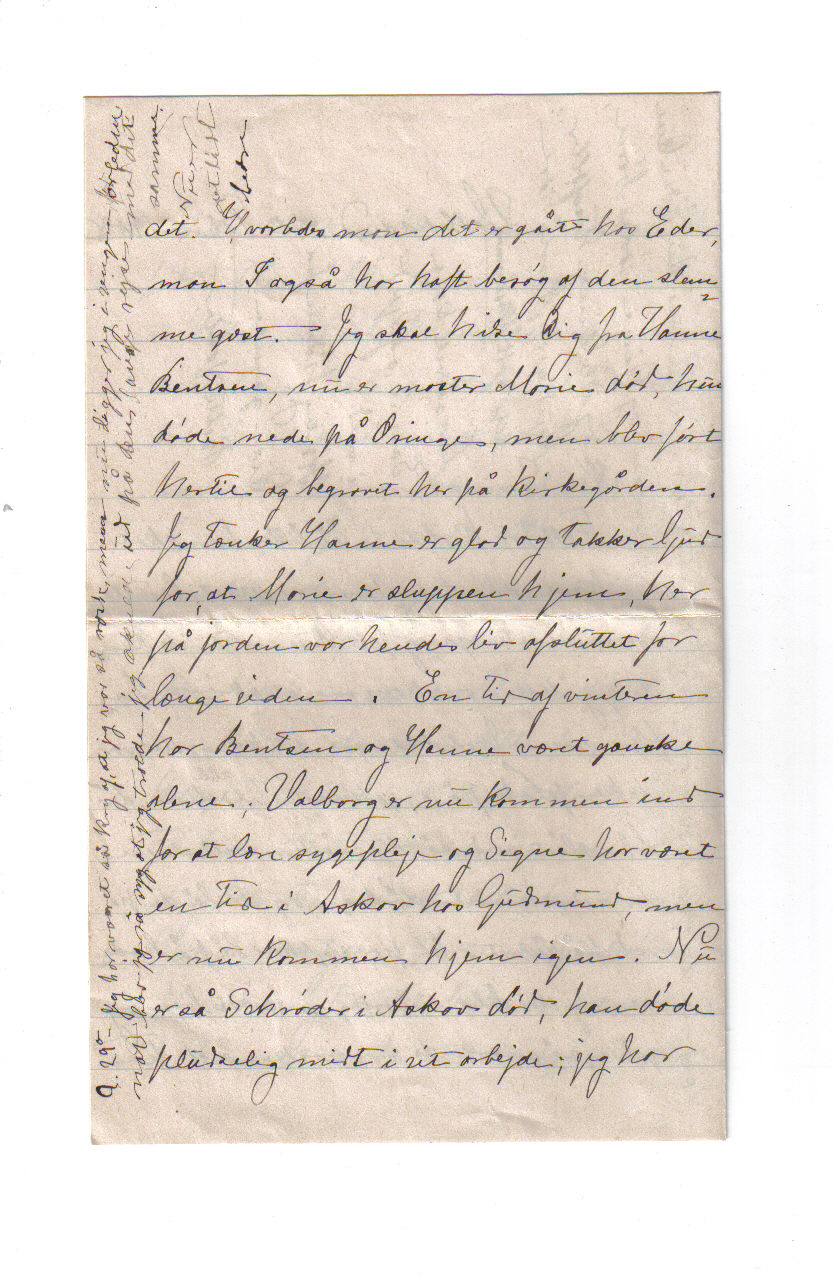 det. Hvorledes mon det er gået hos Eder,
mon I også har haft besøg af den slem=
me gæst. – Jeg skal hilse Dig fra Hanne
Bentsen, nu er moster Marie død, hun
døde nede på Ringe, men blev ført
hertil og begravet her på kirkegården.
Jeg tænker Hanne er glad og takker Gud
for, at Marie er sluppen hjem, her
på jorden var hendes liv afsluttet for
længe siden. En tid af vinteren
har Bentsen og Hanne været ganske
alene, Valborg er nu kommen ind
for at lære sygepleje og Signe har været
en tid i Askov hos Gudmund, men
er nu kommen hjem igen. Nu
er så Schrøder i Askov død, han døde
pludselig midt i sit arbejde; jeg har
d. 29de Jeg har været så kry af, at jeg var så rask, men nu ligger jeg i sengen, forleden
nat blev jeg så syg at jeg troede jeg skulde ud på den lange rejse med det
samme.
Nu er
det lidt
bedre